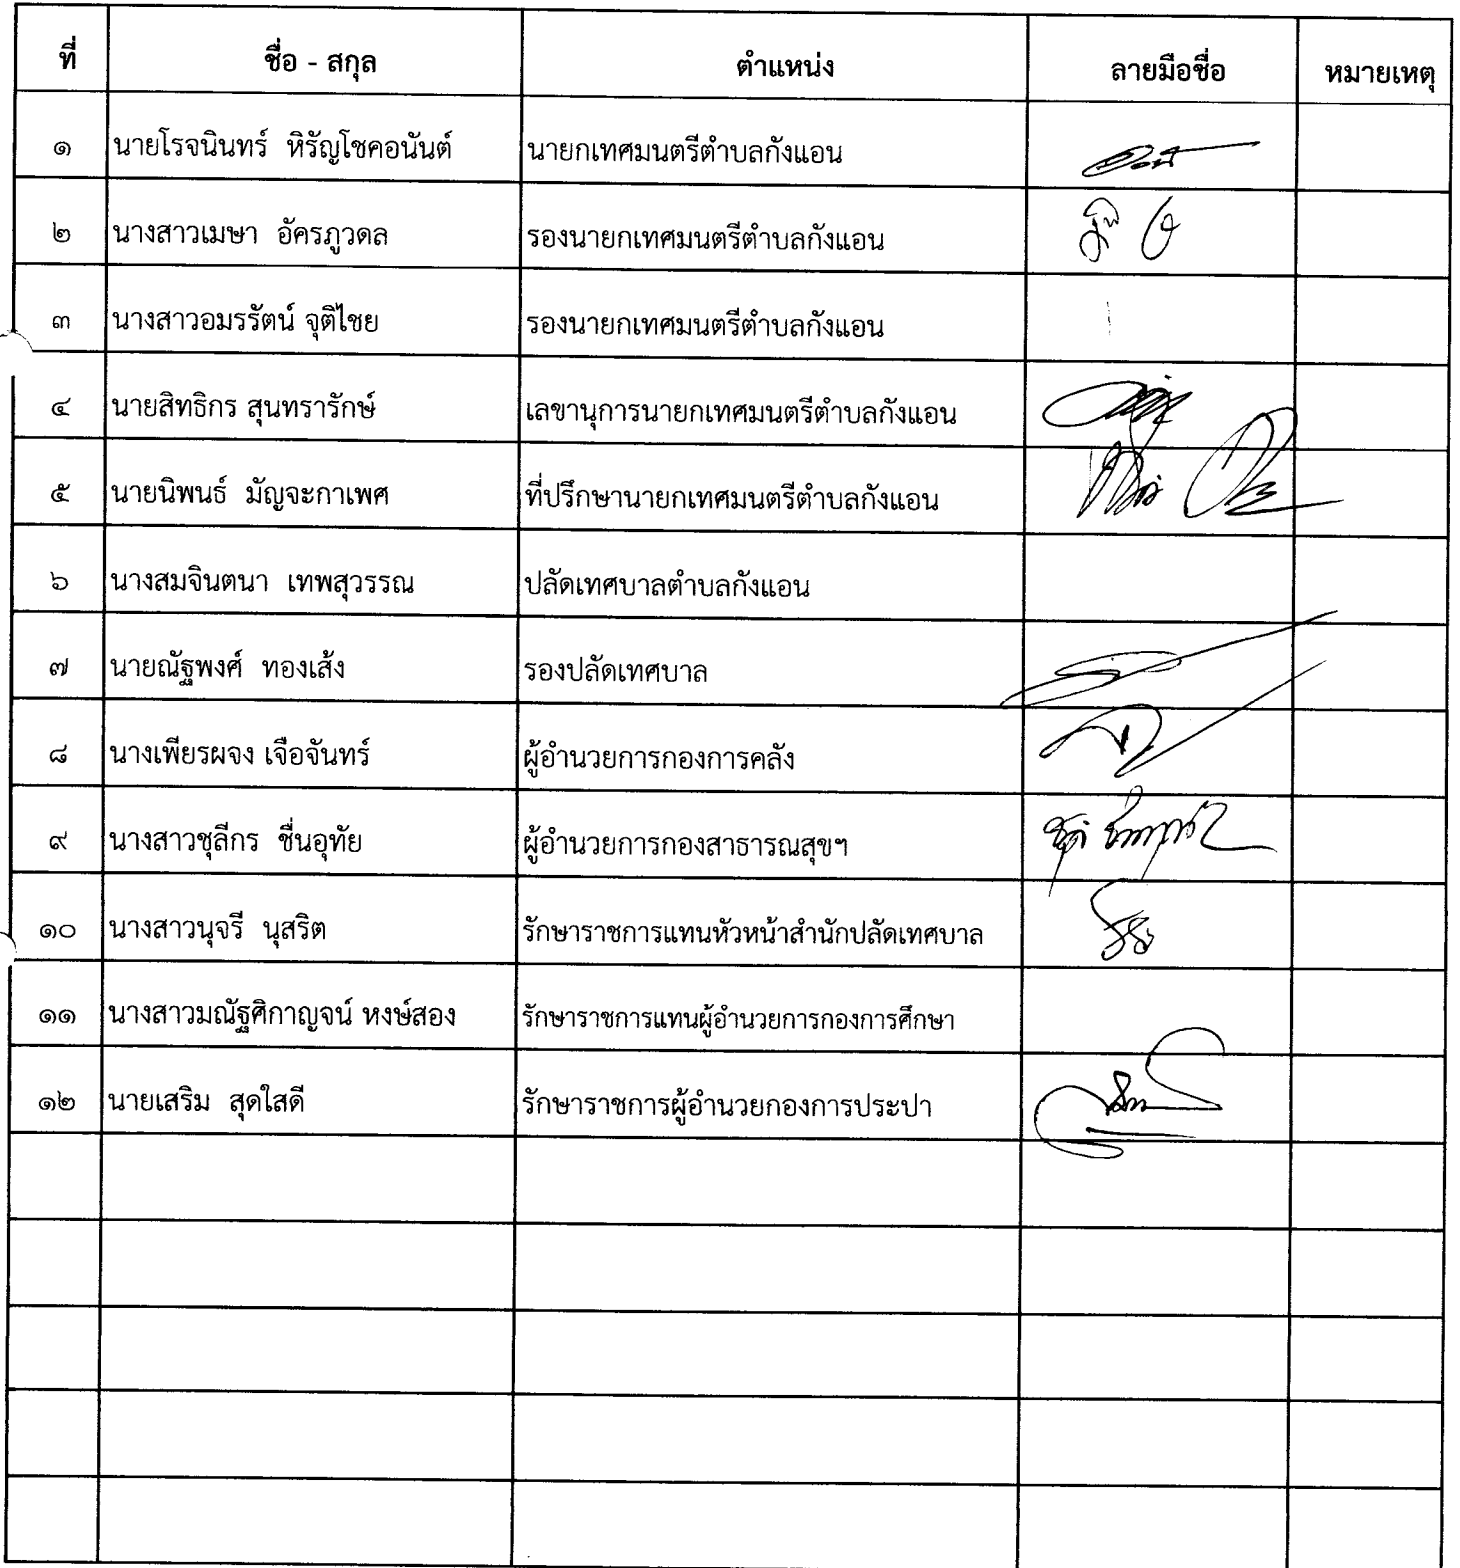 ที่ ชื่อ - สกุล ตำแหน่ง ลายมือชื่อ หมายเหตุ
๑ นายโรจนินทร์ หิรัญโชคอนันต์ นายกเทศมนตรีตำบลกังแอน
๒ นางสาวเมษา อัครภูวดล รองนายกเทศมนตรีตำบลกังแอน
๓ นางสาวอมรรัตน์ จุติไชย รองนายกเทศมนตรีตำบลกังแอน
๔ นายสิทธิกร สุนทรารักษ์ เลขานุการนายกเทศมนตรีตำบลกังแอน
๕ นายนิพนธ์ มัญจะกาเพศ ที่ปรึกษานายกเทศมนตรีตำบลกังแอน
๖ นางสมจินตนา เทพสุวรรณ ปลัดเทศบาลตำบลกังแอน
๗ นายณัฐพงศ์ ทองเส้ง รองปลัดเทศบาล
๘ นางเพียรผจง เจือจันทร์ ผู้อำนวยการกองการคลัง
๙ นางสาวชุลีกร ชื่นอุทัย ผู้อำนวยการกองสาธารณสุขฯ
๑๐ นางสาวนุจรี นุสริต รักษาราชการแทนหัวหน้าสำนักปลัดเทศบาล
๑๑ นางสาวมณัฐศิกาญจน์ หงษ์สอง รักษาราชการแทนผู้อำนวยการกองการศึกษา
๑๒ นายเสริม สุดใสดี รักษาราชการผู้อำนวยกองการประปา